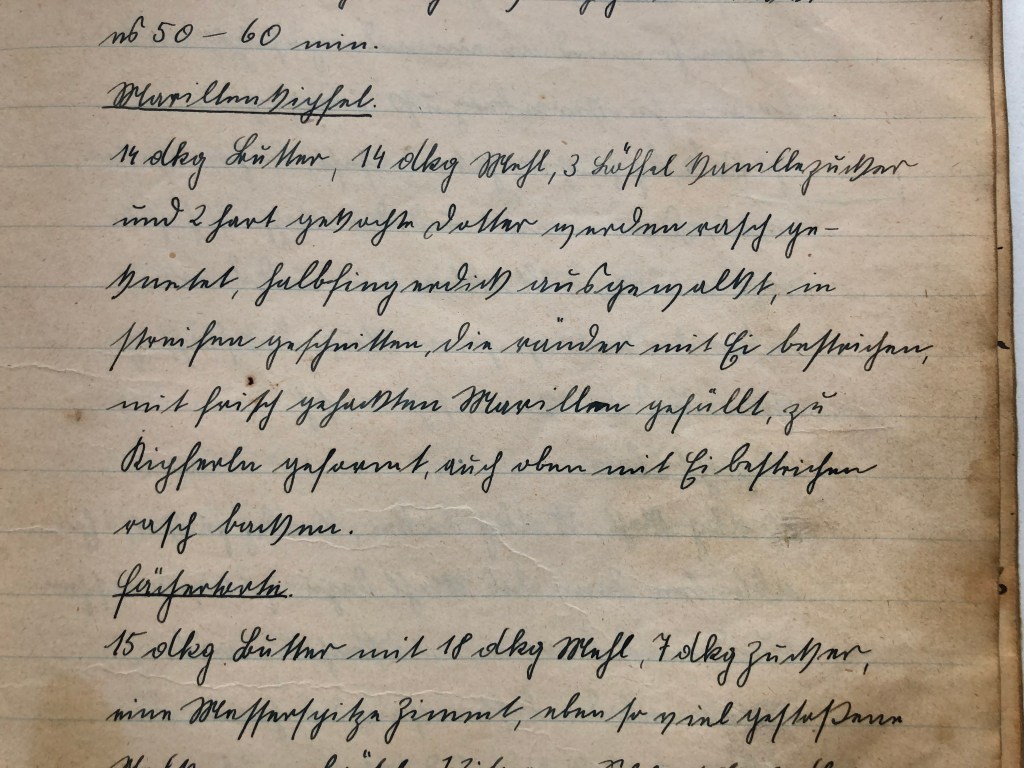 es 50 – 60 min.
Marillenkipfel.
14 dkg Butter, 14 dkg Mehl, 3 Löffel Vanillezucker
und 2 hart gekochte Dotter werden rasch ge-
knetet, halbfingerdick ausgewalkt, in
streifen geschnitten, die ränder mit Ei bestrichen,
mit frisch gehackten Marillen gefüllt, zu
Kipferln geformt, auch oben mit Ei bestrichen
rasch backen.
Fächertorte.
15 dkg Butter mit 18 dkg Mehl, 7 dkg Zucker,
eine Messerspitze Zimmt, eben so viel gestoßene